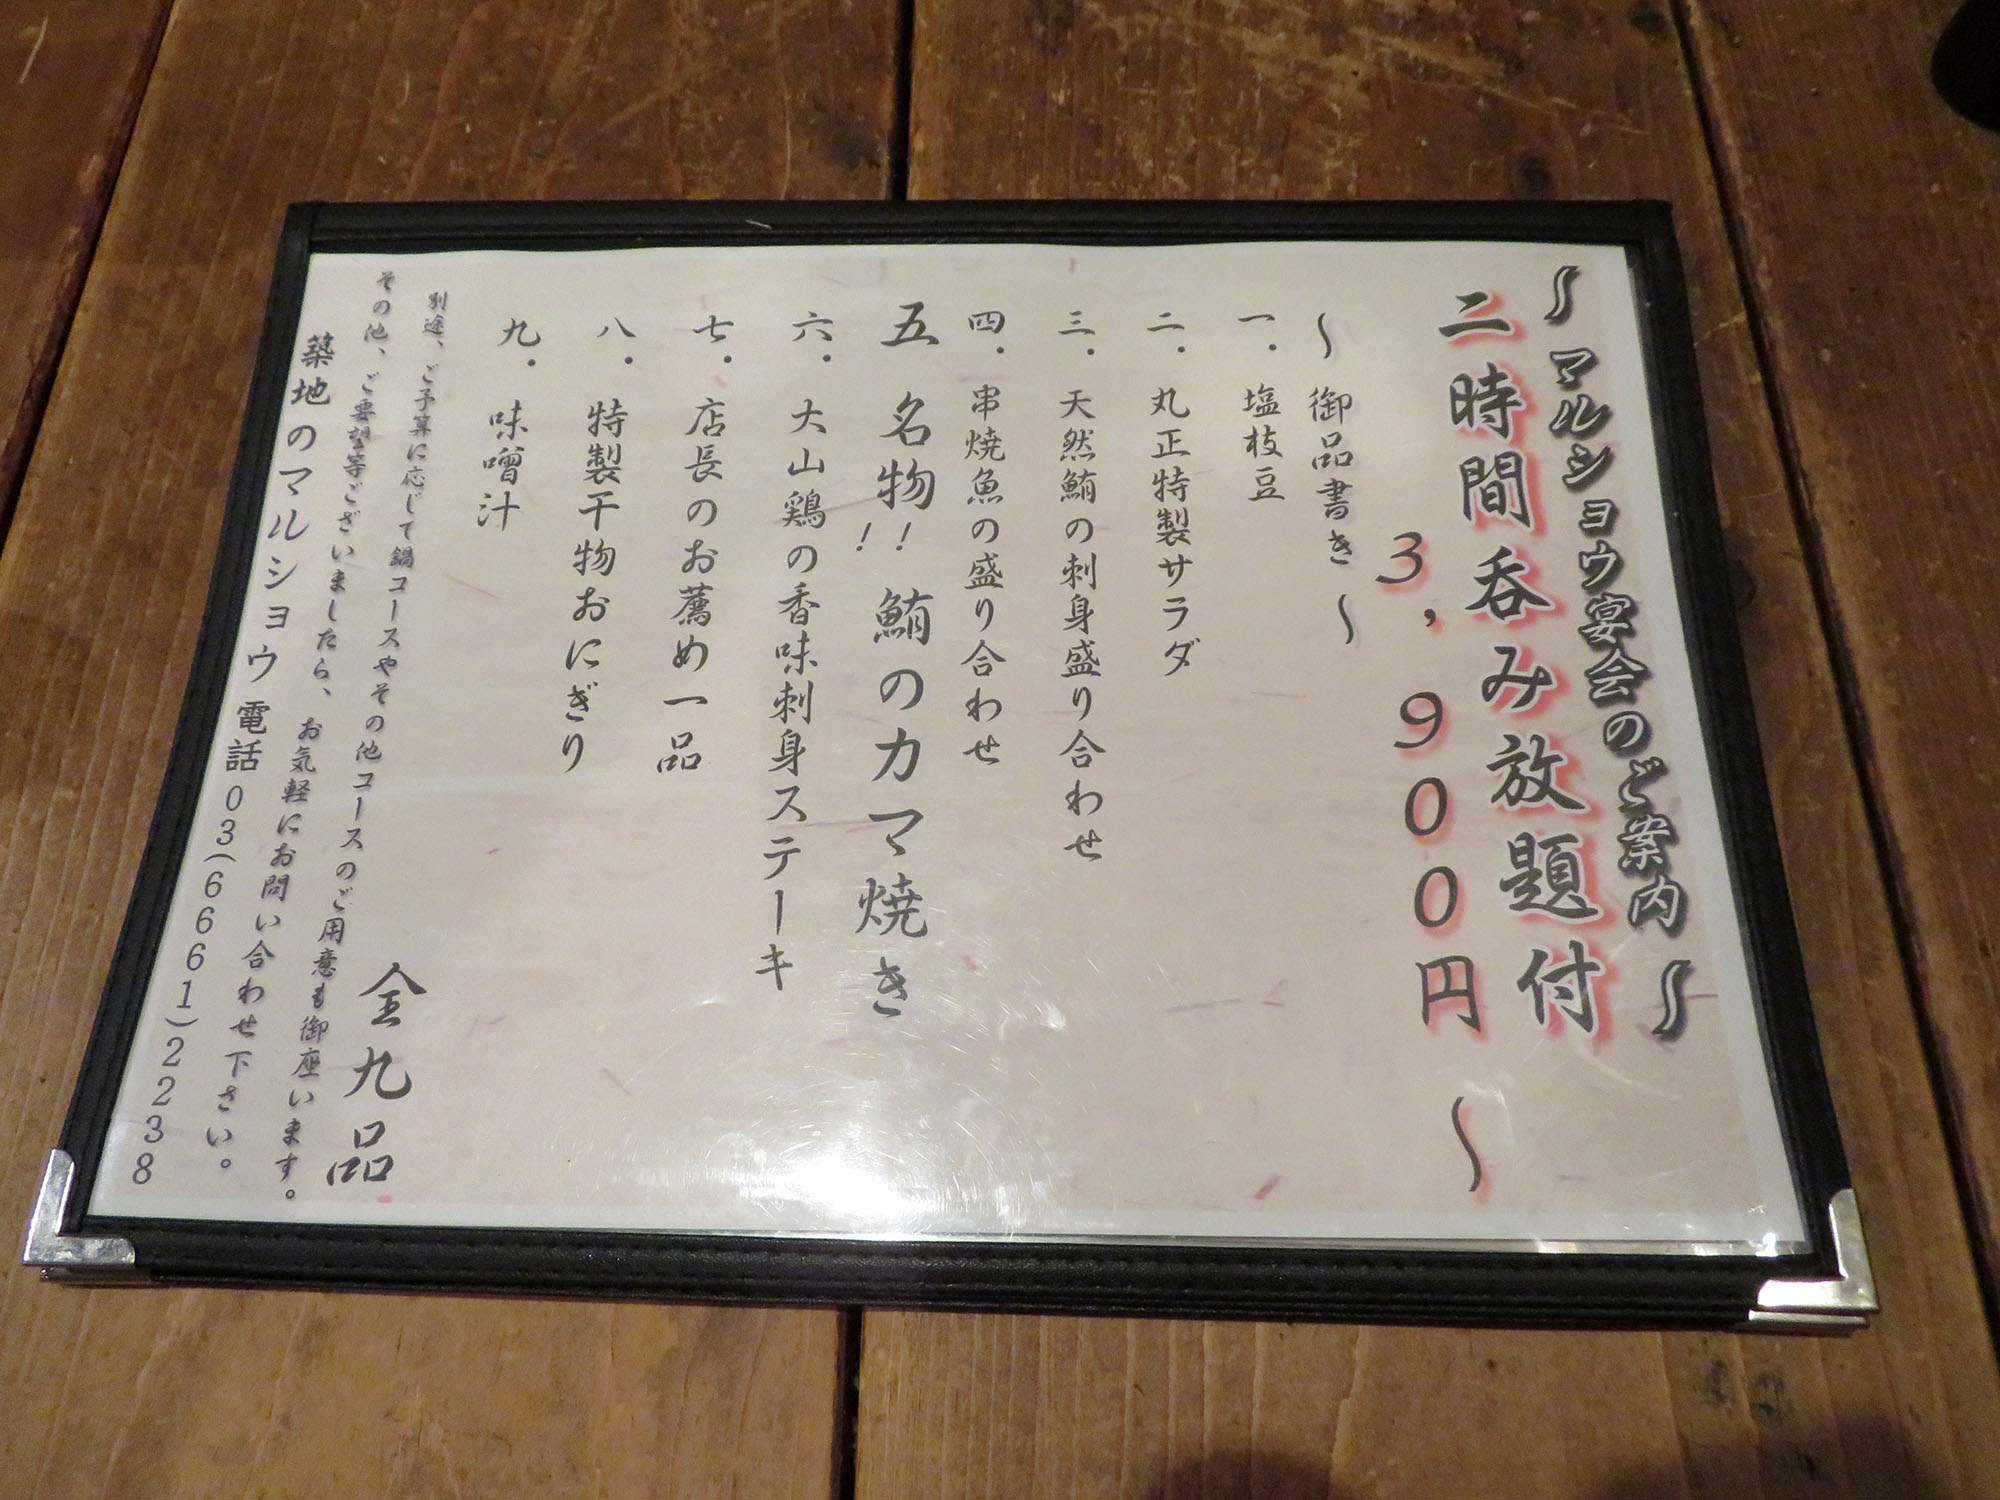 ～マルショウ宴会のご案内～
二時間呑み放題付
3,900円～
～御品書き～
一.塩枝豆
二.丸正特製サラダ
三.天然鮪の刺身盛り合わせ
四.串焼魚の盛り合わせ
五 名物!!鮪のカマ焼き
六.大山鶏の香味刺身ステーキ
七.店長のお薦め一品
八.特製干物おにぎり
九.味噌汁
全九品
別途、ご予算に応じて鍋コースやその他コースのご用意も御座います。
その他、ご要望等ございましたら、お気軽にお問い合わせ下さい。
築地のマルショウ 電話03(6661)2238